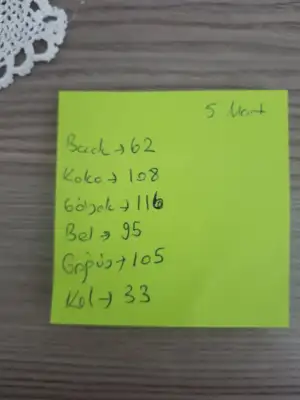 5 Mart
Bacak → 62
Kalça → 108
Göbek → 116
Bel → 95
Göğüs → 105
Kol → 33